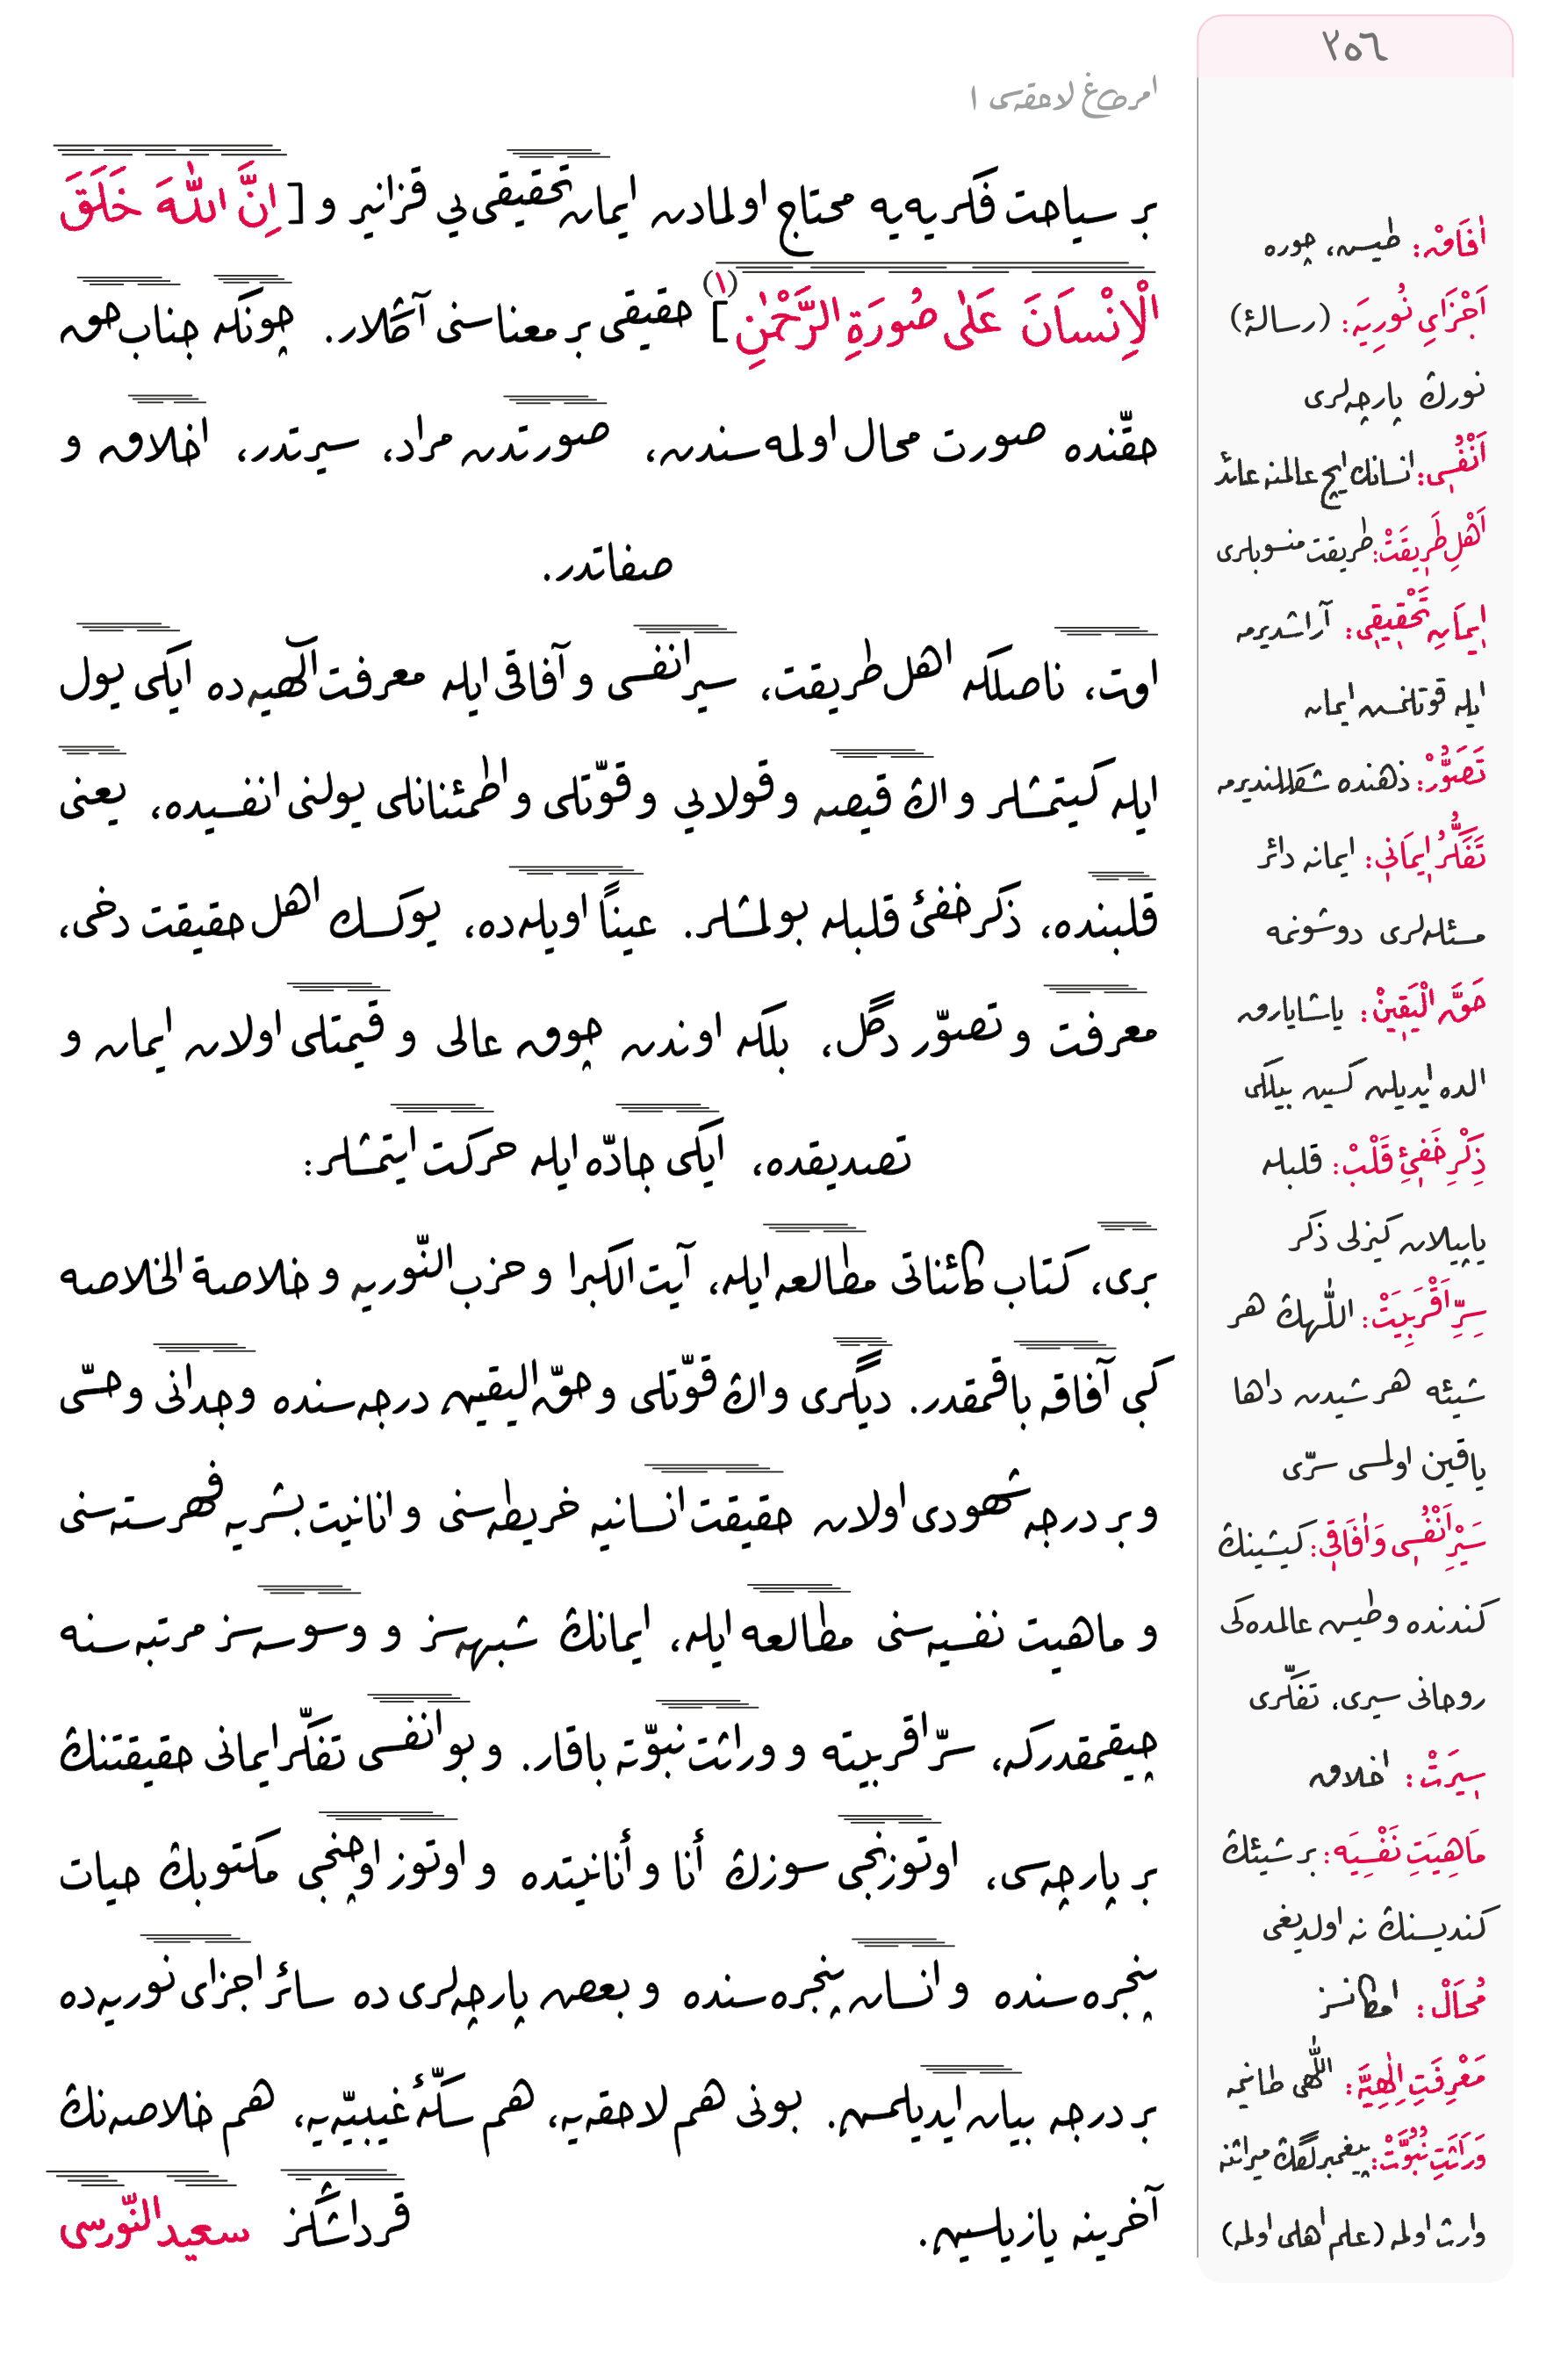 ٢٥٦
امرطاغ لاحقه‌سی ١
بر سیاحت فكریه‌یه محتاج اولمادن ایمان تحقیقی‌یی قزانیر و [اِنَّ اللّٰهَ خَلَقَ
الْاِنْسَانَ عَلٰى صُورَةِ الرَّحْمٰنِ] (١) حقیقی بر معناسنی آڭلار. چونكه جناب حق
حقّنده صورت محال اولمه‌سندن، صورتدن مراد، سیرتدر، اخلاق و
صفاتدر.
اوت، ناصلكه اهل طریقت، سیر انفسی و آفاقی ایله معرفت الٰهیه‌ده ایكی یول
ایله كیتمشلر و اڭ قیصه و قولایی و قوّتلی و اطمئنانلی یولنی انفسیده، یعنی
قلبنده، ذكر خفیٔ قلبله بولمشلر. عیناً اویله‌ده، یوكسك اهل حقیقت دخی،
معرفت و تصوّر دگل، بلكه اوندن چوق عالی و قیمتلی اولان ایمان و
تصدیقده، ایكی جادّه ایله حركت ایتمشلر:
بری، كتاب كائناتی مطالعه ایله، آیت الكبرا و حزب النّوریه و خلاصة الخلاصه
كبی آفاقه باقمقدر. دیگری و اڭ قوّتلی و حقّ الیقین درجه‌سنده وجدانی و حسّی
و بر درجه شهودی اولان حقیقت انسانیه خریطه‌سنی و انانیت بشریه فهرسته‌سنی
و ماهیت نفسیه‌سنی مطالعه ایله، ایمانڭ شبهه‌سز و وسوسه‌سز مرتبه‌سنه
چیقمقدركه، سرّ اقربیته و وراثت نبوّته باقار. و بو انفسی تفكّر ایمانی حقیقتنڭ
بر پارچه‌سی، اوتوزنجی سوزڭ أنا و أنانیتده و اوتوز اوچنجی مكتوبڭ حیات
پنجره‌سنده و انسان پنجره‌سنده و بعض پارچه‌لری ده سائر اجزای نوریه‌ده
بر درجه بیان ایدیلمش. بونی هم لاحقه‌یه، هم سكّۀ غیبیّه‌یه، هم خلاصه‌نڭ
آخرینه یازیلسین. قرداشڭز سعید النّورسی
اٰفَاقْ: طیش، چوره
اَجْزَايِ نُورِيَه: (رسالۀ)
نورڭ پارچه‌لری
اَنْفُسِی: انسانڭ ایچ عالمنه عائد
اَهْلِ طَرِيقَتْ: طریقت منسوبلری
اِيمَانِ تَحْقِيقِی: آراشدیرمه
ایله قوتلنمش ایمان
تَصَوُّرْ: ذهنده شكللندیرمه
تَفَكُّرُ اِيمَانِی: ایمانه دائر
مسئله‌لری دوشونمه
حَقَّ الْيَقِينْ: یاشایارق
الده ایدیلن كسین بیلگی
ذِكْرِ خَفِیِٔ قَلْبْ: قلبله
یاپیلان كیزلی ذكر
سِرِّ اَقْرَبِيَتْ: اللّٰهڭ هر
شیئه هر شیدن داها
یاقین اولمسی سرّی
سَيْرِ اَنْفُسِی وَ اٰفَاقِی: كیشینڭ
كندنده و طیش عالمده‌كی
روحانی سیری، تفكّری
سِيرَتْ: اخلاق
مَاهِيَتِ نَفْسِيَه: بر شیئڭ
كندیسنڭ نه اولدیغی
مُحَالْ: امكانسز
مَعْرِفَتِ اِلٰهِيَّه: اللّٰهی طانیمه
وَرَاثَتِ نُبُوَّتْ: پیغمبرلگڭ میراثنه
وارث اولمه (علم اهلی اولمه)